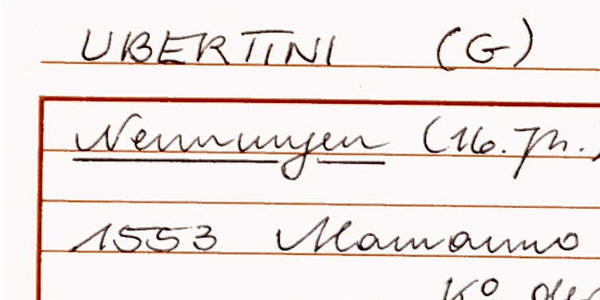 UBERTINI (G)
Nennungen (16. Jh.)
1553 Mamanno
K° der